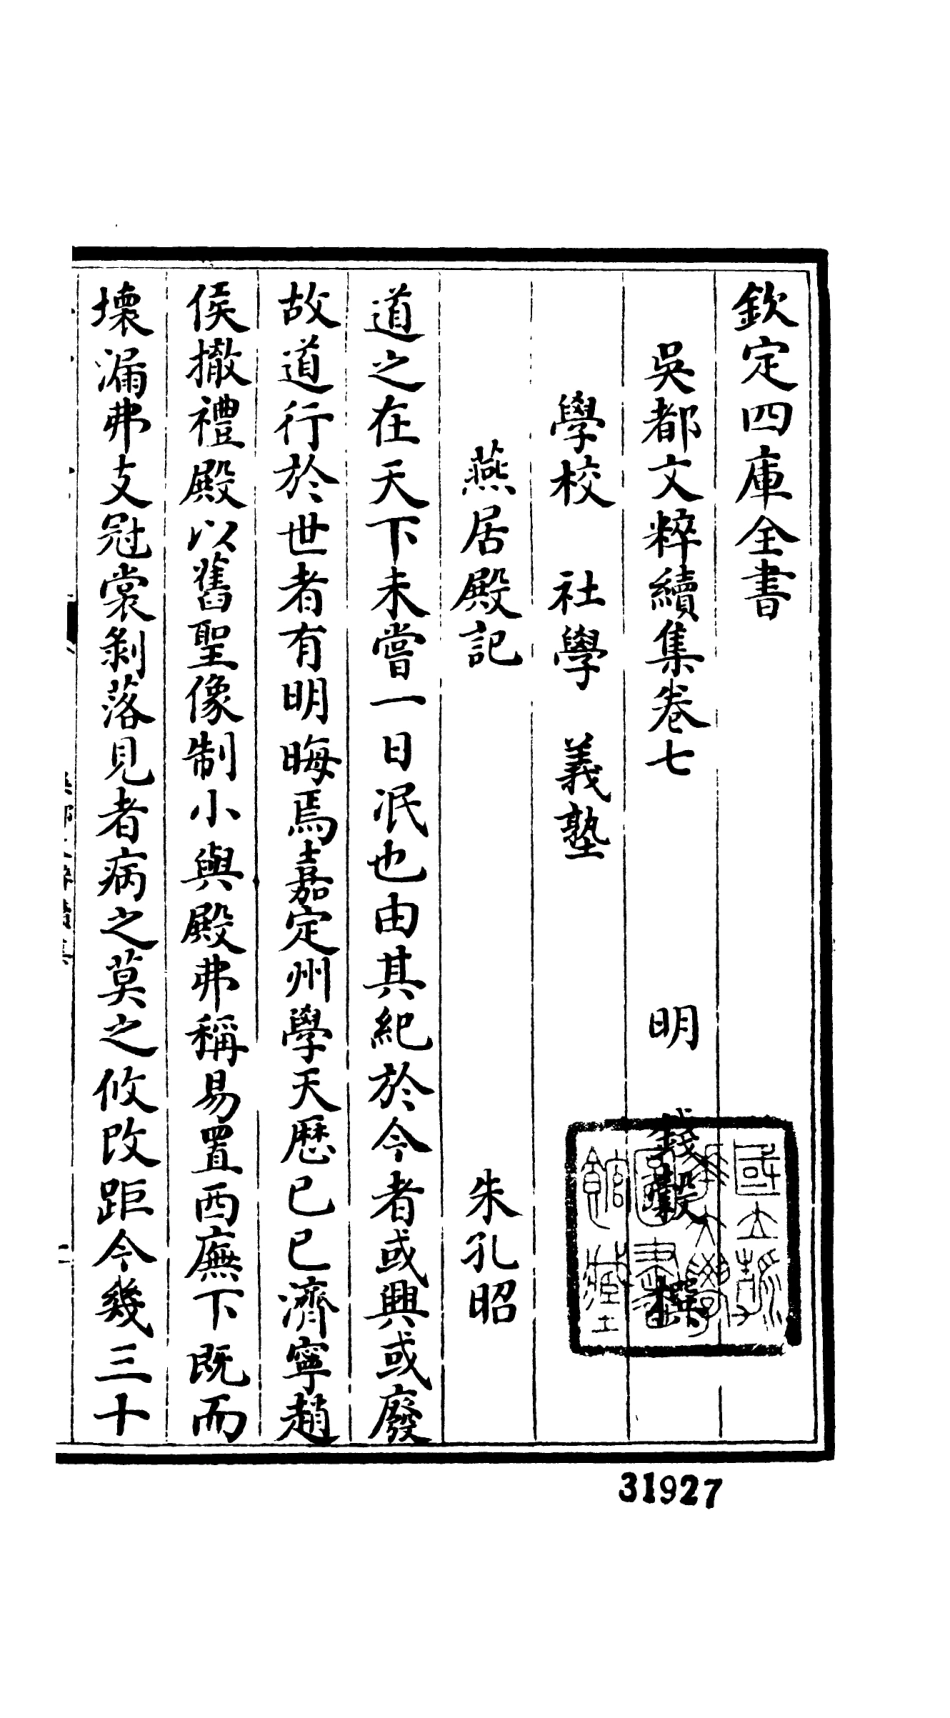 欽定四庫全書
吳都文粹續集卷七 明 錢穀 撰
學校 社學 義塾
燕居殿記 朱孔昭
道之在天下未嘗一日泯也由其紀於今者或興或廢
故道行於世者有明晦焉嘉定州學天厯已已濟寧趙
侯撤禮殿以舊聖像制小與殿弗稱易置西廡下既而
壞漏弗支冠裳剝落見者病之莫之攸改距今幾三十
國立
大學
圖書
館藏
31927